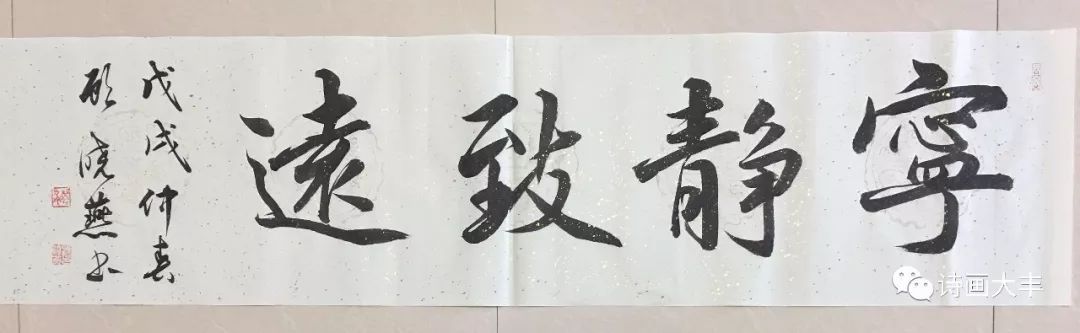 寧靜致遠
戊戌仲春
顾晓燕书
诗画大丰